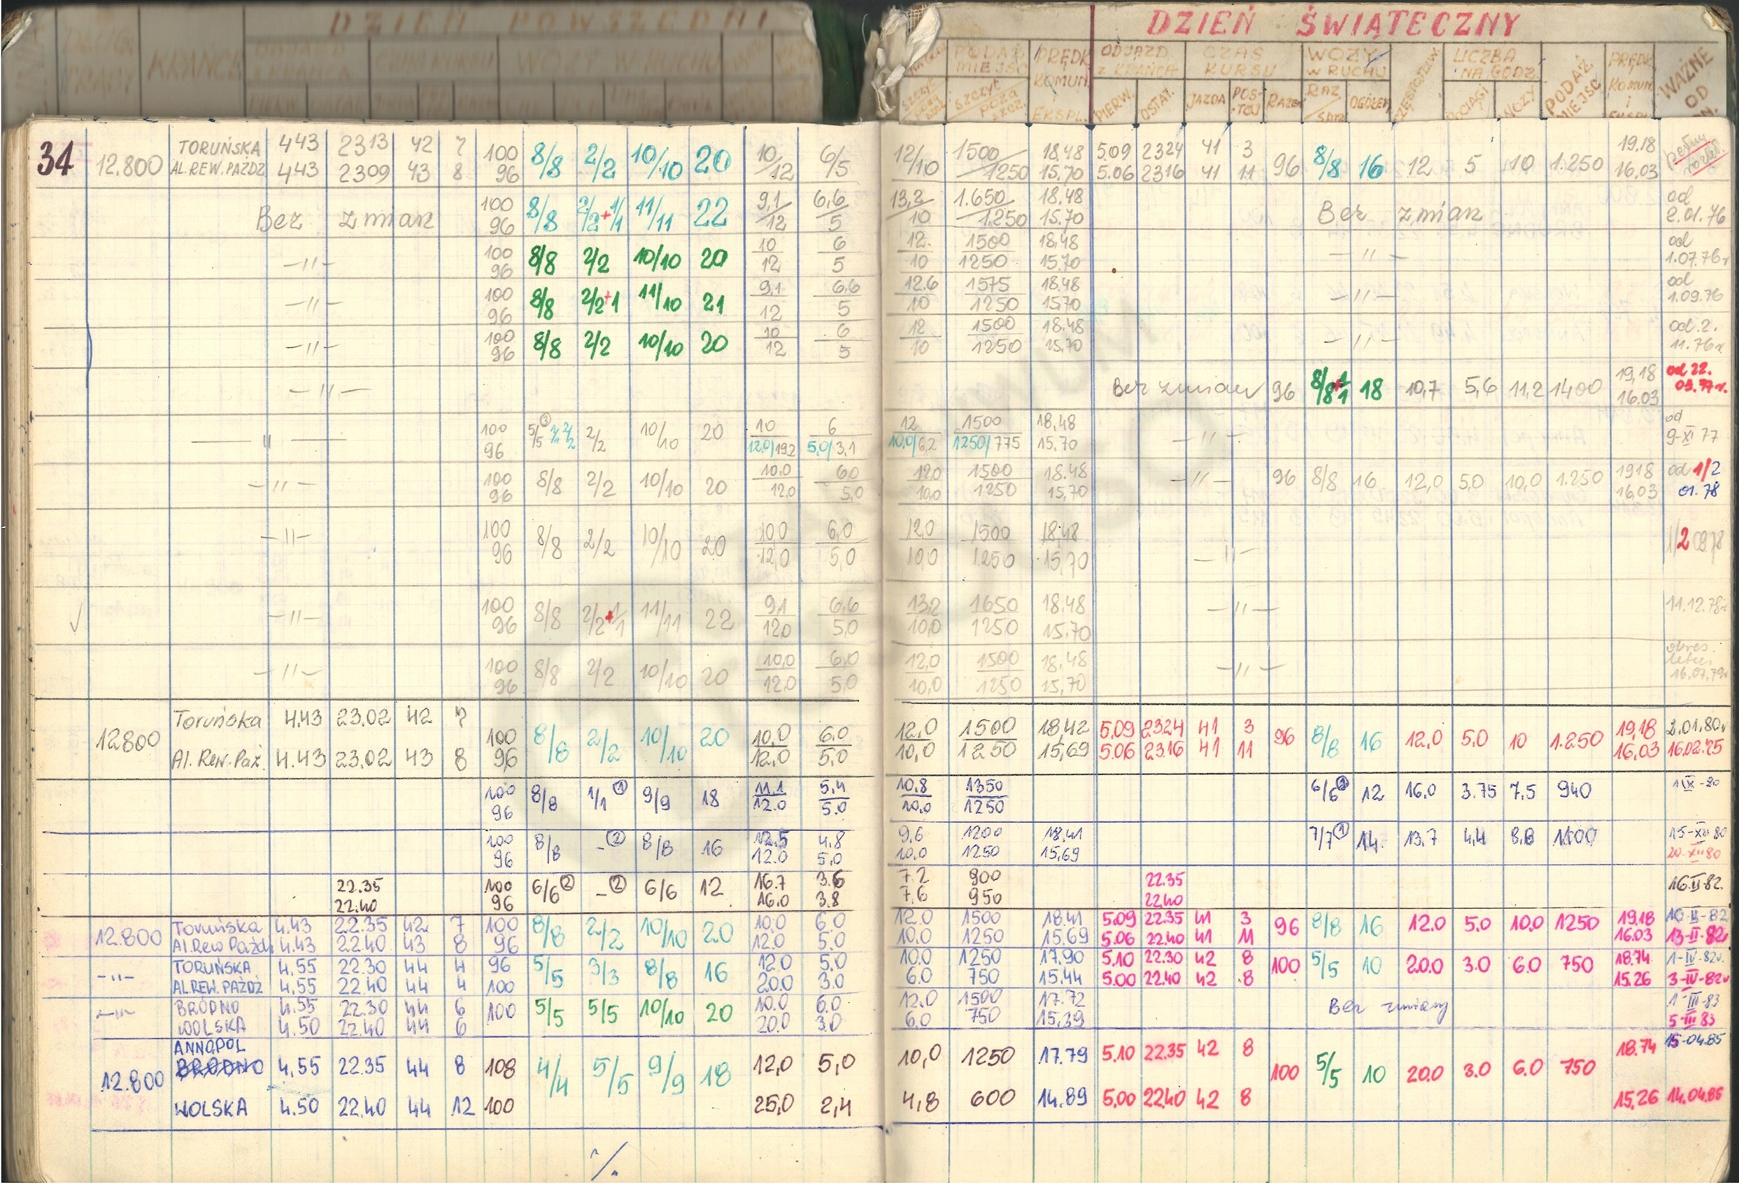 DZIEŃ POWSZEDNI
DZIEŃ ŚWIĄTECZNY
KRAŃCE
WOZY W RUCHU
PODAŻ MIEJSC
PRĘDK. KOMUN. EKSPL.
ODJAZD z KRAŃCA
CZAS KURSU
WOZY W RUCHU
LICZBA NA GODZ.
PODAŻ MIEJSC
PRĘDK. KOMUN. i
WAŻNE OD
PIERW. OSTAT. JAZDA POS-TÓJ RAZEM OGÓŁEM POCIĄGI WOZY
34 12.800 TORUŃSKA 443 2313 42 7 100 8/8 2/2 10/10 20 10 6/5 12/10 1500 18,48 5.09 2324 41 3 96 8/8 16 12 5 10 1.250 19.18
AL.REW.PAŹDZ 443 2309 43 8 96 12 1250 15,70 5.06 2316 41 11 16.03
Bez zmian 100 8/8 2/2+1/1 11/11 22 9,1 6,6 13,2 1.650 18.48 Bez zmian od
96 12 5 10 1.250 15.70 2.01.76
–〃– 100 8/8 2/2 10/10 20 10 6 12. 1500 18,48 –〃– od
96 12 5 10 1250 15.70 1.07.76r
–〃– 100 8/8 2/2+1 11/10 21 9,1 6,6 12.6 1575 18.48 –〃– od
96 12 5 10 1250 15.70 1.09.76
–〃– 100 8/8 2/2 10/10 20 10 6 12 1500 18,48 –〃– od. 2.
96 12 5 10 1250 15,70 11.76r
–〃– Bez zmian 96 8/8+1/1 18 10,7 5,6 11,2 1400 19,18 od 22.
16.03 03.77r.
–〃– 100 5/5 2/2 2/2 10/10 20 10 6 12 1500 18,48 –〃– od
96 12,0/19,2 5,0/3,1 10,0/6,2 1250/775 15,70 9-XI 77
–〃– 100 8/8 2/2 10/10 20 10.0 6,0 12,0 1500 18.48 –〃– 96 8/8 16 12,0 5,0 10,0 1.250 19.18 od 1/2
96 12,0 5,0 10,0 1250 15,70 16.03 01.78
–〃– 100 8/8 2/2 10/10 20 10,0 6,0 12,0 1500 18,48 –〃–
96 12,0 5,0 10,0 1250 15,70
–〃– 100 8/8 2/2+1/1 11/11 22 9,1 6,6 13,2 1650 18,48 –〃– 11.12.78r
96 12,0 5,0 10,0 1250 15.70
–〃– 100 8/8 2/2 10/10 20 10,0 6,0 12,0 1500 18,48 –〃–
96 12,0 5,0 10,0 1250 15,70 16.07.79r
12800 Toruńska 4.43 23.02 42 7 100 8/8 2/2 10/10 20 10,0 6.0 12,0 1500 18,42 5.09 2324 41 3 96 8/8 16 12,0 5,0 10 1.250 19,18 2.01.80r
Al. Rew. Paź. 4.43 23.02 43 8 96 12.0 5.0 10,0 1250 15,69 5.06 2316 41 11 16.03
100 8/8 1/1① 9/9 18 11.1 5.4 10.8 1350 6/6② 12 16.0 3.75 7,5 940 1 IX-80
96 12.0 5.0 10.0 1250
100 8/8 -② 8/8 16 12.5 4.8 9,6 1200 18,41 7/7① 14 13.7 4,4 8,8 1100 15-XII 80
96 12.0 5,0 10,0 1250 15,69 20.XII 80
22.35 100 6/6② -② 6/6 12 16.7 3.6 7.2 900 22.35 16.II-82.
22.40 96 16.0 3.8 7.6 950 22.40
12.800 Toruńska 4.43 22.35 42 7 100 8/8 2/2 10/10 20 10.0 6.0 12.0 1500 18.41 5.09 22.35 41 3 96 8/8 16 12.0 5.0 10.0 1250 19.18 10-II-82
Al Rew Paźdz 4.43 22.40 43 8 96 12.0 5.0 10.0 1250 15.69 5.06 22.40 41 11 16.03 13-II-82r
–〃– TORUŃSKA 4.55 22.30 44 4 96 5/5 3/3 8/8 16 12.0 5.0 10.0 1250 17.90 5.10 22.30 42 8 100 5/5 10 20.0 3.0 6.0 750 18.74 1-IV-82r.
AL REW. PAŹDZ 4.55 22.40 44 4 100 20.0 3.0 6.0 750 15.44 5.00 22.40 42 8 15.26 3-IV-82r
–〃– BRÓDNO 4.55 22.30 44 6 100 5/5 5/5 10/10 20 10.0 6.0 12.0 1500 17.72 Bez zmiany 1-III-83
WOLSKA 4.50 22.40 44 6 20.0 3.0 6.0 750 15,39 5 III 83
ANNOPOL 15-04.85
12.800 BRÓDNO 4,55 22.35 44 8 108 4/4 5/5 9/9 18 12,0 5,0 10,0 1250 17.79 5.10 22.35 42 8 100 5/5 10 20.0 3.0 6.0 750 18.74
WOLSKA 4.50 22.40 44 12 100 25,0 2,4 4,8 600 14.89 5,00 22.40 42 8 15,26 14.04.85
·/.